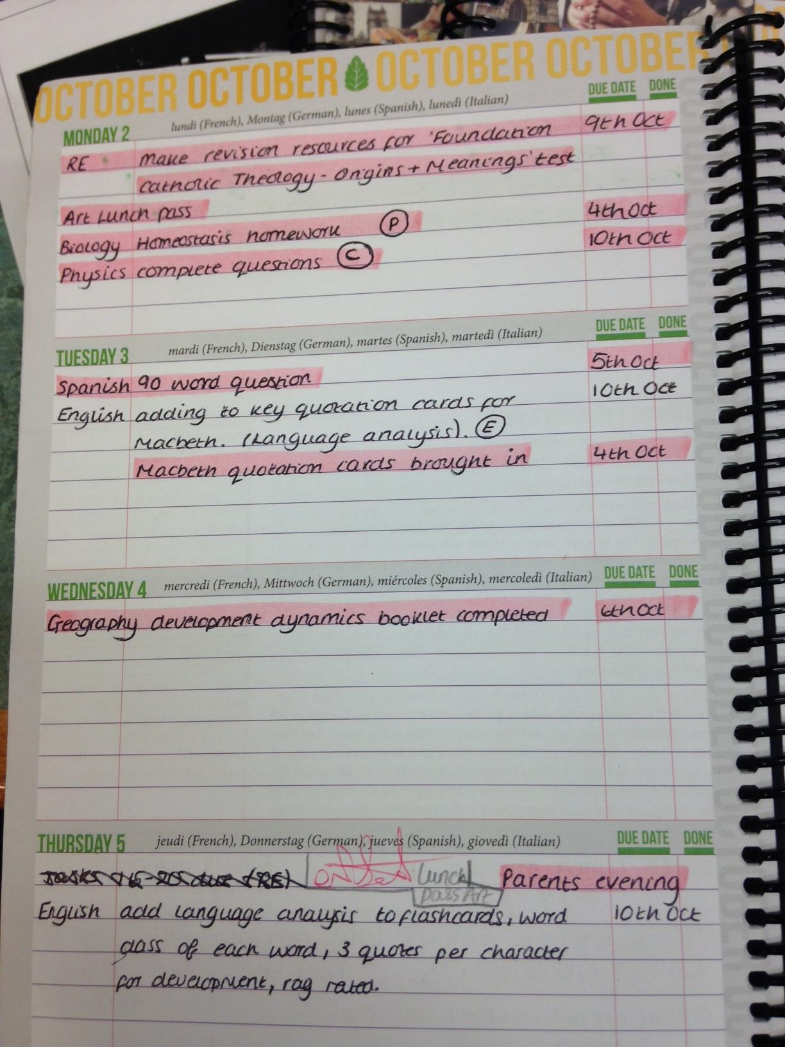 OCTOBER OCTOBER OCTOBER OCTOBER
MONDAY 2 lundi (French), Montag (German), lunes (Spanish), lunedì (Italian) DUE DATE DONE
RE make revision resources for 'Foundation 9th Oct
Catholic Theology - Origins + Meanings' test
Art Lunch pass 4th Oct
Biology Homeostasis homework P 10th Oct
Physics complete questions C
TUESDAY 3 mardi (French), Dienstag (German), martes (Spanish), martedì (Italian) DUE DATE DONE
Spanish 90 word question 5th Oct
English adding to key quotation cards for 10th Oct
Macbeth. (Language analysis). E
Macbeth quotation cards brought in 4th Oct
WEDNESDAY 4 mercredi (French), Mittwoch (German), miércoles (Spanish), mercoledì (Italian) DUE DATE DONE
Geography development dynamics booklet completed 6th Oct
THURSDAY 5 jeudi (French), Donnerstag (German), jueves (Spanish), giovedì (Italian) DUE DATE DONE
Lunch Parents evening
pass Art
English add language analysis to flashcards, word 10th Oct
class of each word, 3 quotes per character
for development, rag rated.